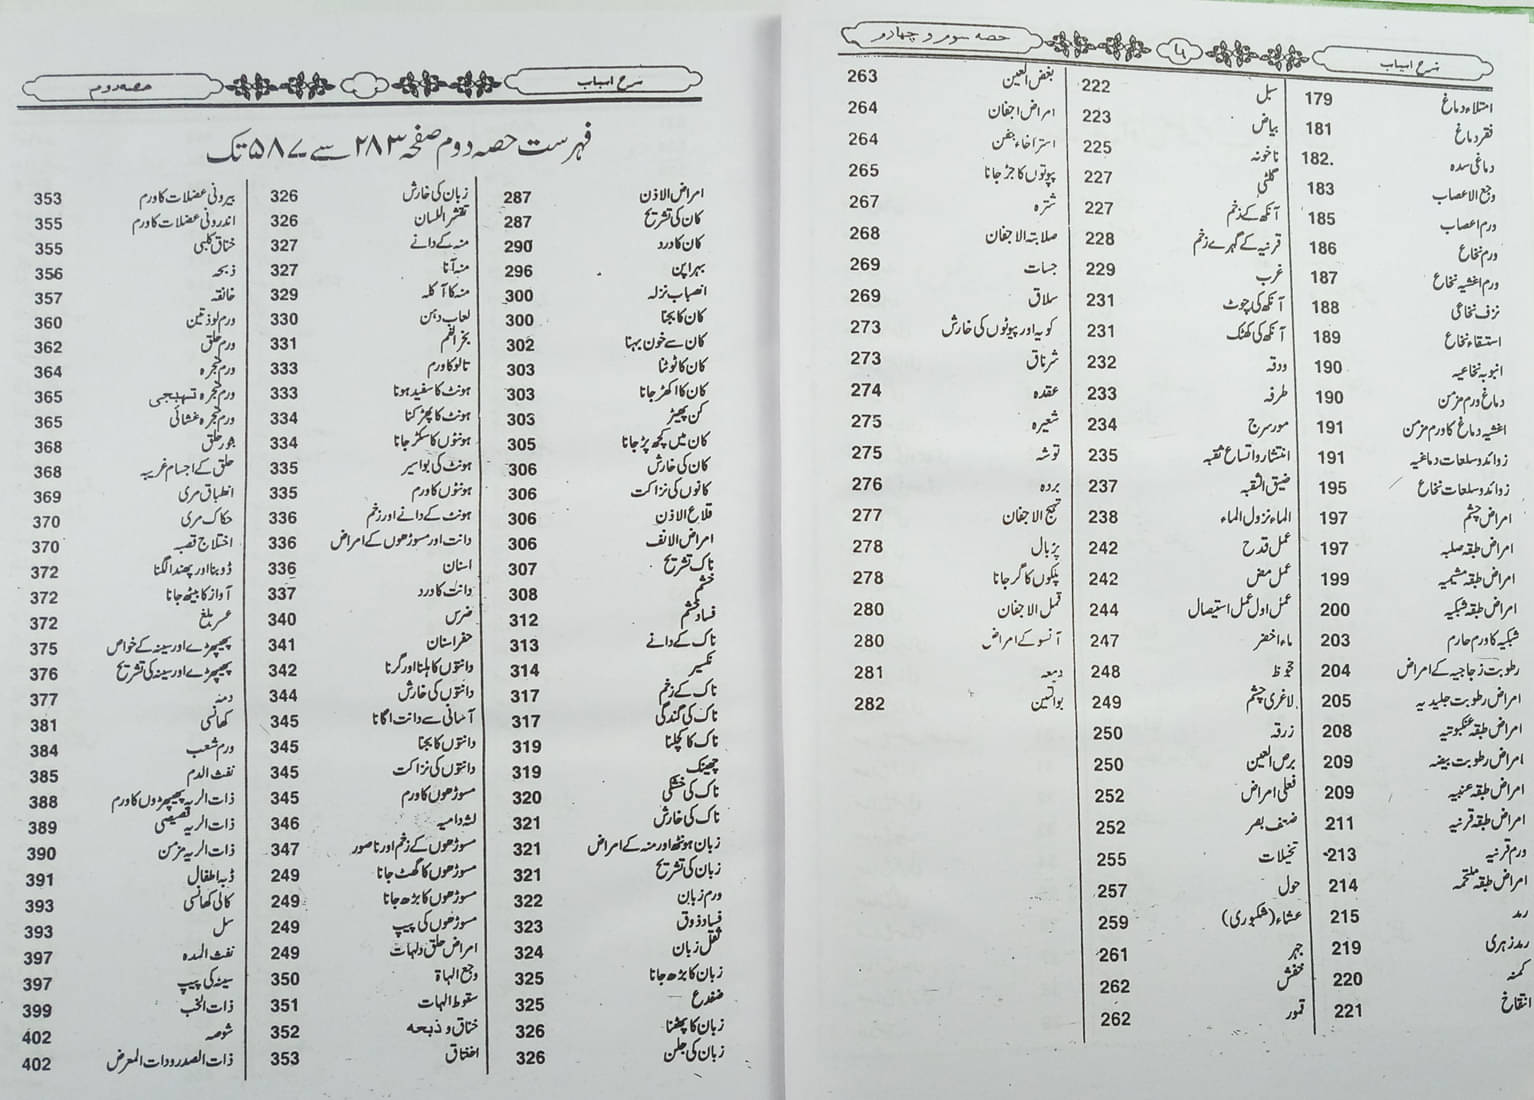 شرح اسباب
حصہ سوم و چہارم
امتلاء دماغ 179
فقر دماغ 181
دماغی سدہ 182
وجع الاعصاب 183
ورم اعصاب 185
ورم نخاع 186
ورم اغشیہ نخاع 187
نزف نخاعی 188
استسقاء نخاع 189
انبوبہ نخاعیہ 190
دماغ ورم مزمن 190
اغشیہ دماغ کا ورم مزمن 191
زوائد و سلعات دماغیہ 191
زوائد و سلعات نخاع 195
امراض چشم 197
امراض طبقہ صلبہ 197
امراض طبقہ مشیمیہ 199
امراض طبقہ شبکیہ 200
شبکیہ کا ورم حارم 203
رطوبت زجاجیہ کے امراض 204
امراض رطوبت جلیدیہ 205
امراض طبقہ عنکبوتیہ 208
امراض رطوبت بیضہ 209
امراض طبقہ عنبیہ 209
امراض طبقہ قرنیہ 211
ورم قرنیہ 213
امراض طبقہ ملتحمہ 214
رمد 215
رمد زہری 219
کمنہ 220
انتفاخ 221
سبل 222
بیاض 223
ناخونہ 225
گلٹی 227
آنکھ کے زخم 227
قرنیہ کے گہرے زخم 228
غرب 229
آنکھ کی چوٹ 231
آنکھ کی کھٹک 231
ودقہ 232
طرفہ 233
مورسرج 234
انتشار و اتساع ثقبہ 235
ضیق الثقبہ 237
الماء نزول الماء 238
عمل قدح 242
عمل مض 242
عمل اول عمل استیصال 244
ماء اخضر 247
جحوظ 248
لاغری چشم 249
زرقہ 250
برص العین 250
فعلی امراض 252
ضعف بصر 252
تخیلات 255
حول 257
عشاء (شبکوری) 259
جہر 261
خفش 262
قمور 262
بغض العین 263
امراض اجفان 264
استرخاء جفن 264
پپوٹوں کا جڑ جانا 265
شترہ 267
صلابتہ الاجفان 268
جسات 269
سلاق 269
کویہ اور پپوٹوں کی خارش 273
شرناق 273
عقدہ 274
شعیرہ 275
توشہ 275
بردہ 276
تہیج الاجفان 277
پڑبال 278
پلکوں کا گر جانا 278
قمل الاجفان 280
آنسو کے امراض 280
دمعہ 281
بواتین 282
شرح اسباب
حصہ دوم
فہرست حصہ دوم صفحہ ۲۸۳ سے ۵۸۷ تک
امراض الاذن 287
کان کی تشریح 287
کان کا درد 290
بہراپن 296
انصباب نزلہ 300
کان کا بجنا 300
کان سے خون بہنا 302
کان کا ٹوٹنا 303
کان کا اکھڑ جانا 303
کن پھیڑ 303
کان میں کچھ پڑ جانا 305
کان کی خارش 306
کانوں کی نزاکت 306
قلاع الاذن 306
امراض الانف 306
ناک تشریح 307
خشم 308
فساد شم 312
ناک کے دانے 313
نکسیر 314
ناک کے زخم 317
ناک کی گندگی 317
ناک کا کچلنا 319
چھینک 319
ناک کی خشکی 320
ناک کی خارش 321
زبان ہونٹھ اور منہ کے امراض 321
زبان کی تشریح 321
ورم زبان 322
فساد ذوق 323
ثقل زبان 324
زبان کا بڑھ جانا 325
ضفدع 325
زبان کا پھٹنا 326
زبان کی جلن 326
زبان کی خارش 326
تقشر اللسان 326
منہ کے دانے 327
منہ آنا 327
منہ کا آکلہ 329
لعاب دہن 330
بخر الفم 331
تالو کا ورم 333
ہونٹ کا سفید ہونا 333
ہونٹ کا پھڑکنا 334
ہونٹوں کا سکڑ جانا 334
ہونٹ کی بواسیر 335
ہونٹوں کا ورم 335
ہونٹ کے دانے اور زخم 336
دانت اور مسوڑھوں کے امراض 336
اسنان 336
دانت کا درد 337
ضرس 340
حفر اسنان 341
دانتوں کا ہلنا اور گرنا 342
دانتوں کی خارش 344
آسانی سے دانت اگانا 345
دانتوں کا بجنا 345
دانتوں کی نزاکت 345
مسوڑھوں کا ورم 345
لثہ دامیہ 346
مسوڑھوں کے زخم اور ناصور 347
مسوڑھوں کا گھٹ جانا 249
مسوڑھوں کا بڑھ جانا 249
مسوڑھوں کی پیپ 249
امراض حلق و لہات 249
وجع الہاۃ 350
سقوط الہات 351
خناق و ذبحہ 352
اختناق 353
بیرونی عضلات کا ورم 353
اندرونی عضلات کا ورم 355
خناق کلبی 355
ذبحہ 356
خانقہ 357
ورم لوذتین 360
ورم حلق 362
ورم حنجرہ 364
ورم حنجرہ تہیجی 365
ورم حنجرہ غشائی 365
بثور حلق 368
حلق کے اجسام غریبہ 368
انطباق مری 369
حکاک مری 370
اختلاج قصبہ 370
ڈوبنا اور پھندا لگنا 372
آواز کا بیٹھ جانا 372
عسر بلغ 372
پھیپھڑے اور سینہ کے خواص 375
پھیپھڑے اور سینہ کی تشریح 376
دمہ 377
کھانسی 381
ورم شعب 384
نفث الدم 385
ذات الریہ پھیپھڑوں کا ورم 388
ذات الریہ قصیصی 389
ذات الریہ مزمن 390
ڈبہ اطفال 391
کالی کھانسی 393
سل 393
نفث المدہ 397
سینہ کی پیپ 397
ذات الجنب 399
شوصہ 402
ذات الصدر و ذات المعرض 402